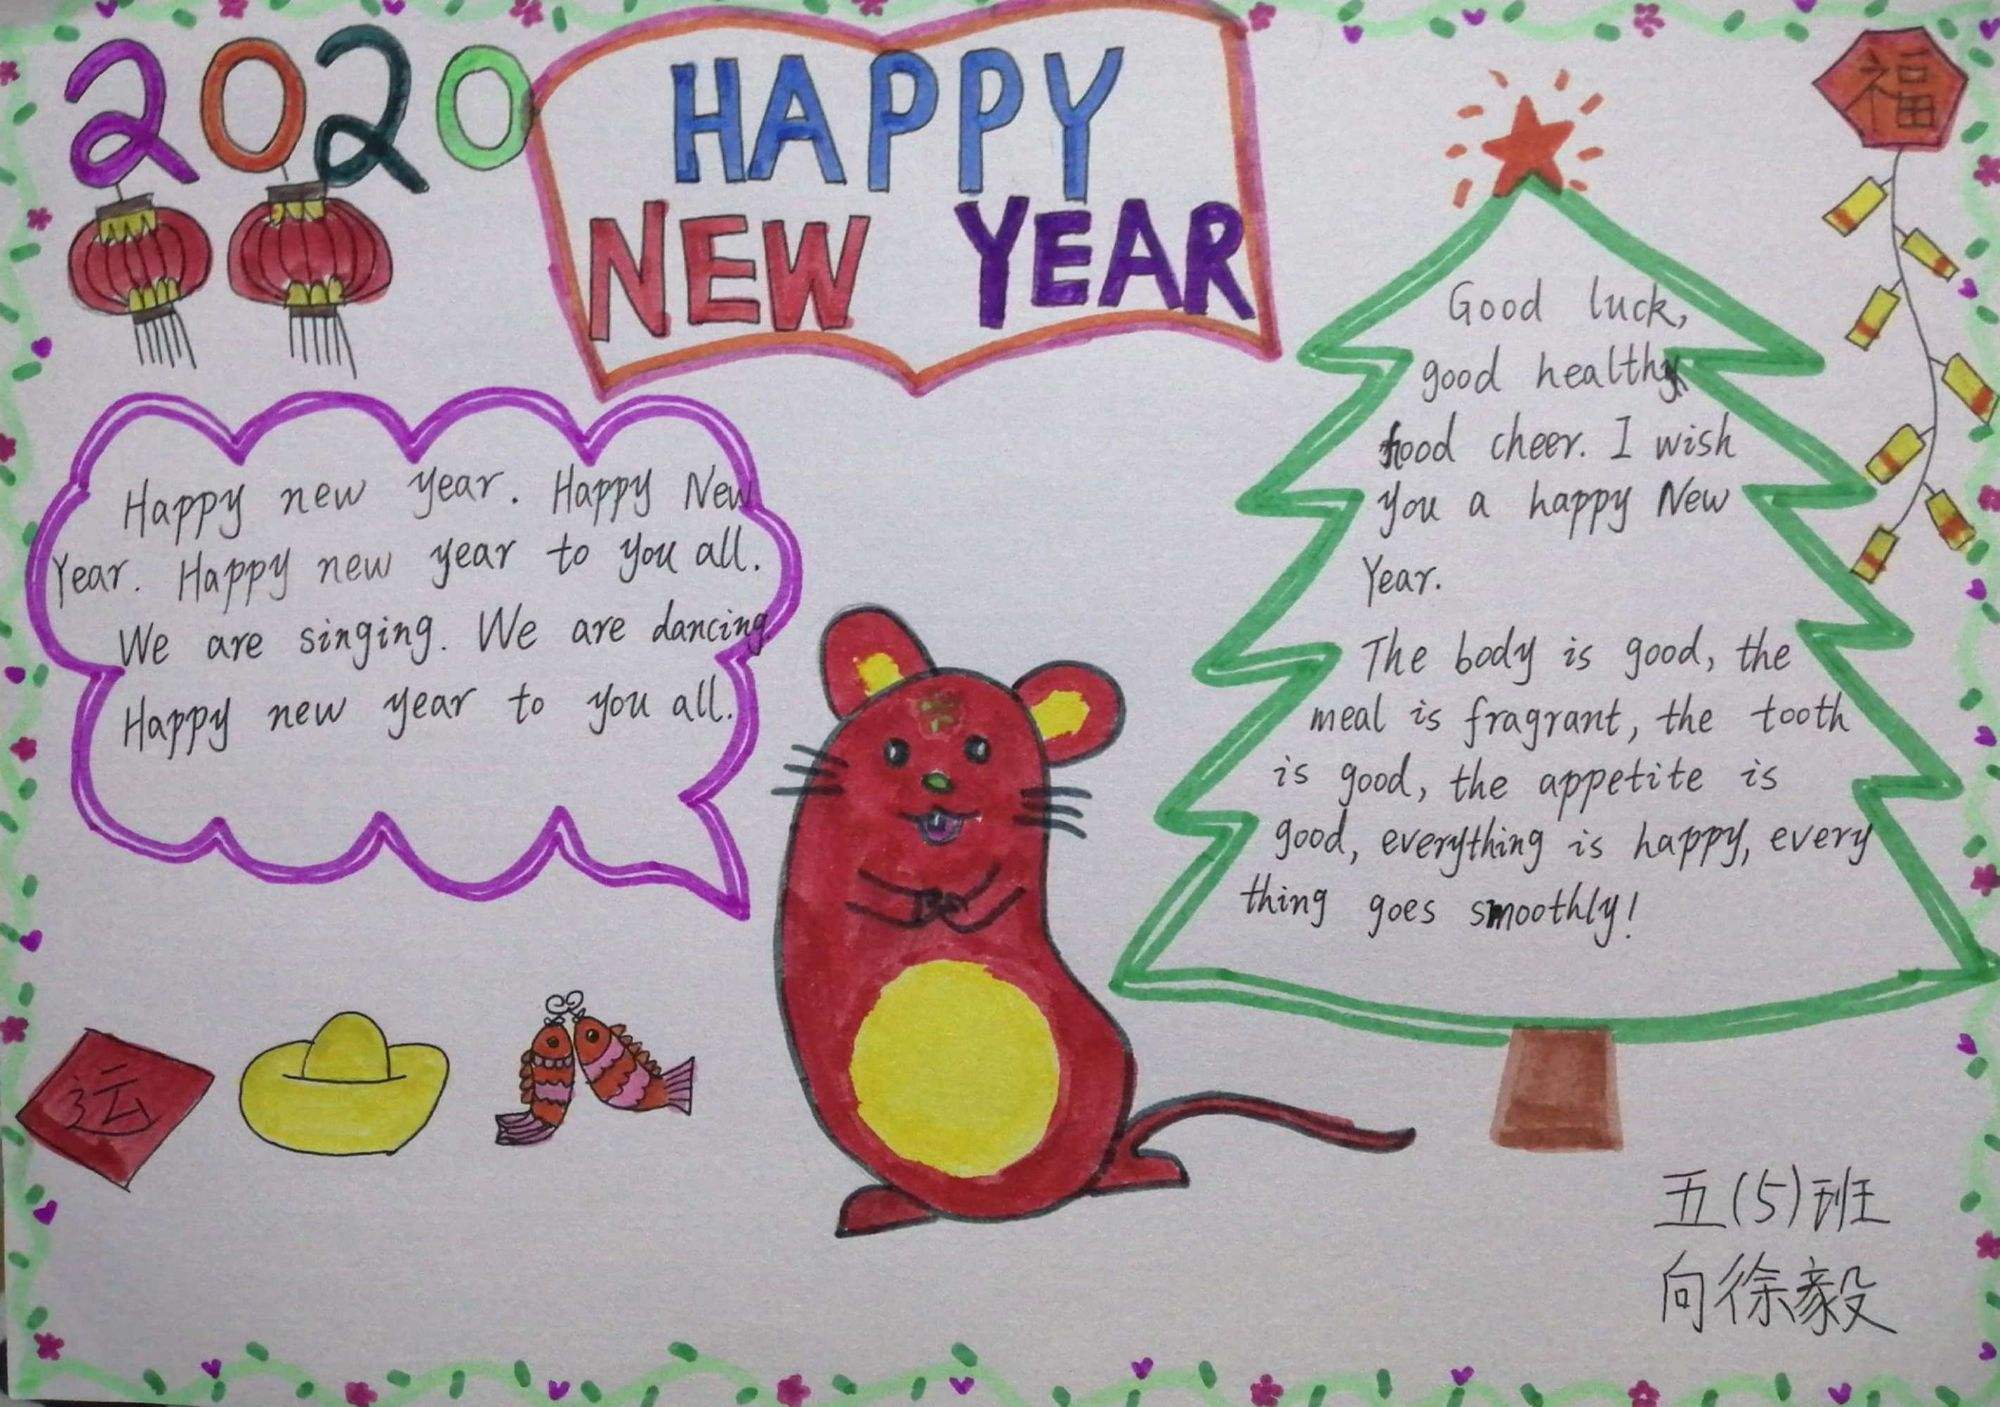 2020
HAPPY
NEW YEAR
福
Happy new year. Happy New
Year. Happy new year to you all.
We are singing. We are dancing.
Happy new year to you all.
Good luck,
good healthy
food cheer. I wish
you a happy New
Year.
The body is good, the
meal is fragrant, the tooth
is good, the appetite is
good, everything is happy, every
thing goes smoothly!
运
五(5)班
向徐毅